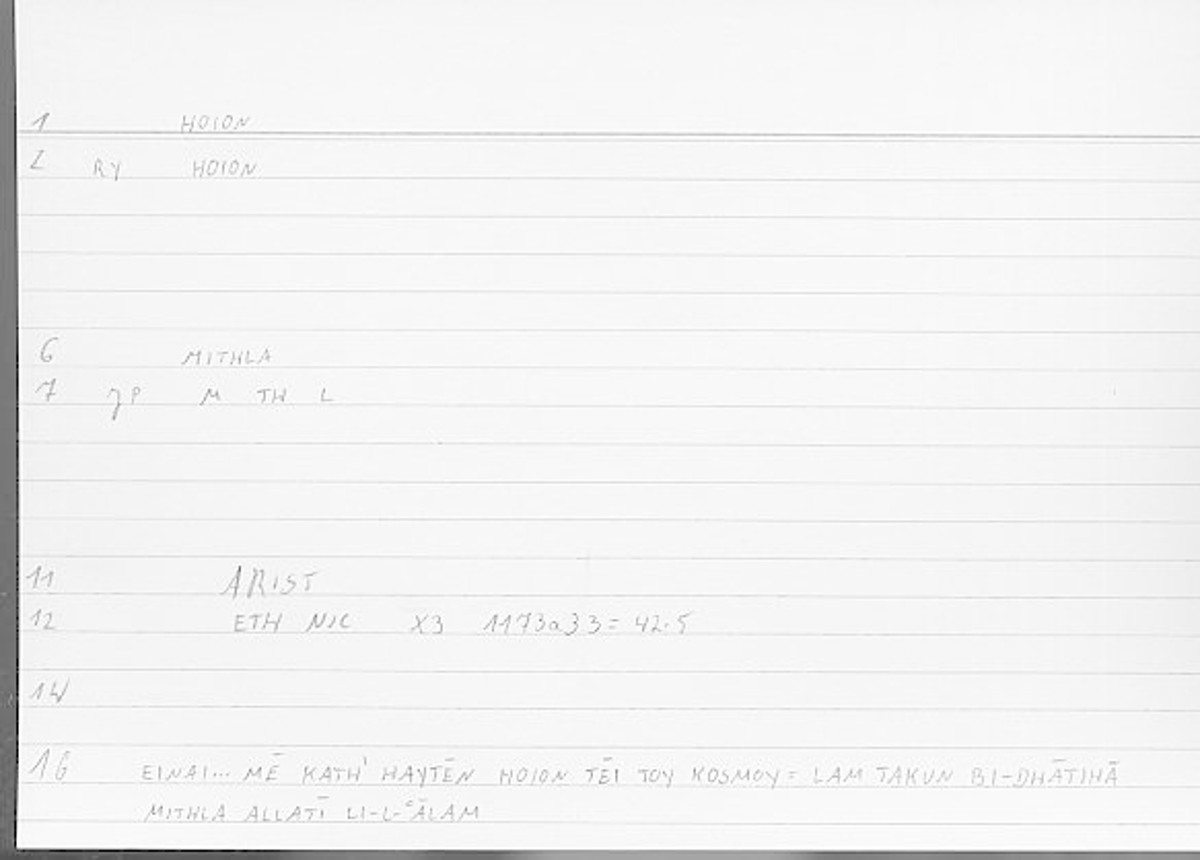 1 HOION
2 RY HOION
6 MITHLA
7 JP M TH L
11 ARIST
12 ETH NIC X3 1173a33= 42.5
14
16 EINAI... MĒ KATH' HAYTĒN HOION TĒI TOY KOSMOY = LAM TAKUN BI-DHĀTIHĀ
MITHLA ALLATĪ LI-L-ʿĀLAM